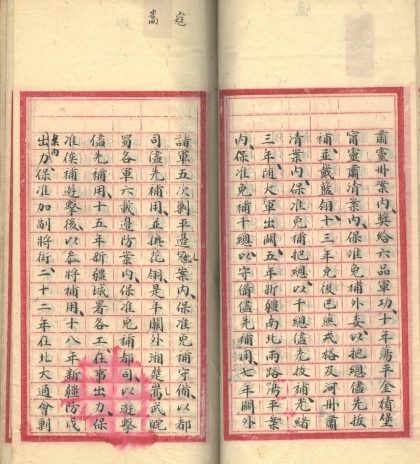 寇
嵩
肅靈州案內獎給六品軍功十年蕩平金積堡
甯靈肅清案內保准免補外委以把總儘先拔
補並戴藍翎十三年克復巴燕戎格及河州肅
清案內保准免補把總以千總儘先拔補光緒
三年隨大軍出關五年新疆南北兩路蕩平案
內保准免補千總以守備儘先補用七年關外
諸軍五次剿平邊寇案內保准免補守備以都
司儘先補用並換花翎是年關外湘楚嵩武皖
蜀各軍六載邊防案內保准免補都司以遊擊
儘先補用十五年新疆城署各工在事出力保
准俟補遊擊後以參將補用十八年新疆防戍
案內出力保准加副將銜二十二年在北大通會剿